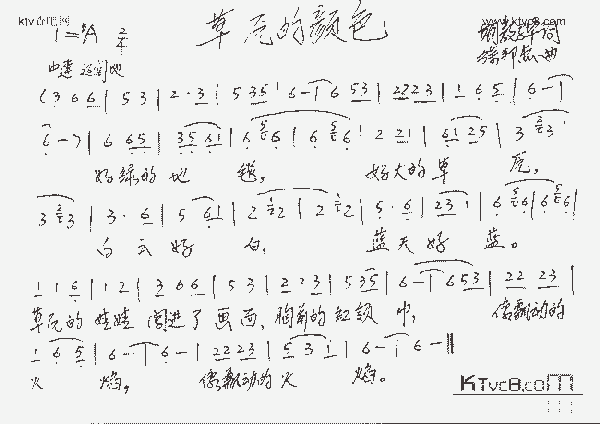 ktvc8曲谱网
www.ktvc8.com
草原的颜色
1=♯A 2/4
词
曲
中速
(3 6 6 | 5 3 | 2 · 3 | 5 3 5 | 6 - | 6 5 3 | 2 2 2 3 | 1 6 5 | 6 - |
6 -) | 6 6 5 | 3 5 6 1 | 6 | 6 | 2 2 1 | 6 1 2 5 | 3
好绿的地毯，好大的草原，
3 | 3 · 6 | 5 6 1 | 2 | 2 | 5 · 6 | 2 3 1 | 6 | 6 |
白云好白，蓝天好蓝。
1 1 6 | 1 2 | 3 6 6 | 5 3 | 2 · 3 | 5 3 5 | 6 - | 6 5 3 | 2 2 2 3 |
草原的娃娃闯进了画面，胸前的红领巾，像飘动的
1 6 5 | 6 - | 6 - | 2 2 2 3 | 5 3 1 | 6 - | 6 - ‖
火焰，像飘动的火焰。
KTvc8.com